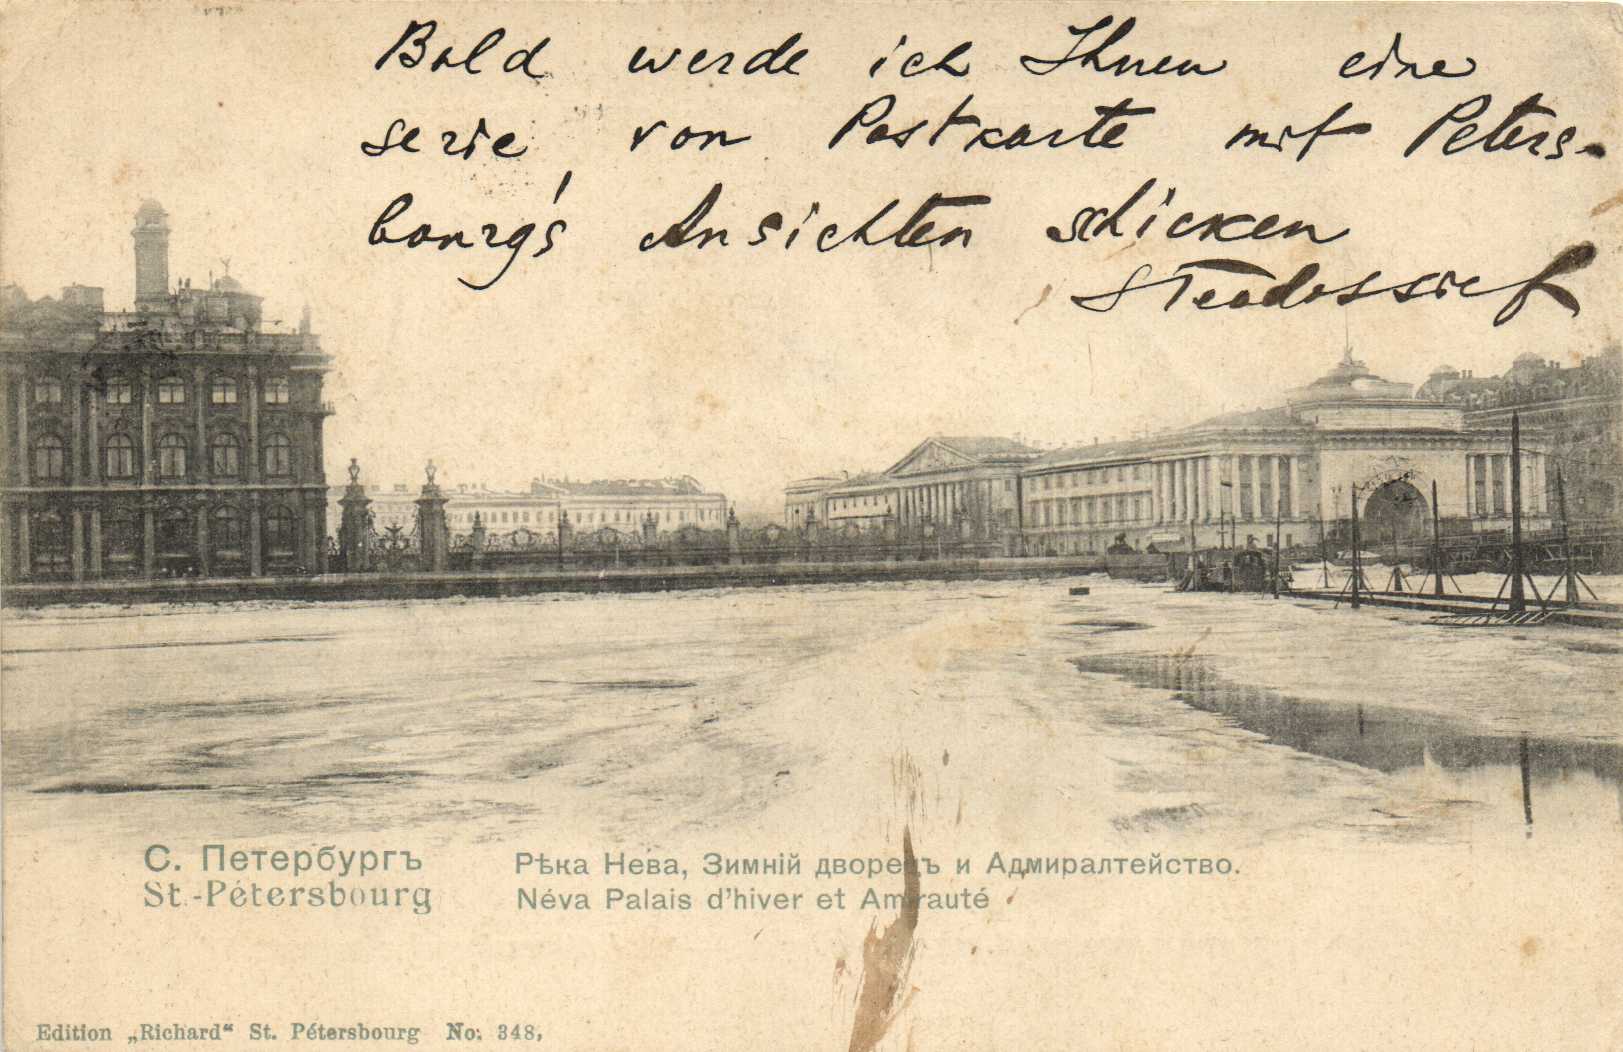 Bald werde ich Ihnen eine
serie von Postkarte mit Peters-
bourg's Ansichten schicken
Feodossief
С. Петербургъ
St.-Pétersbourg
Рѣка Нева, Зимній дворецъ и Адмиралтейство.
Néva Palais d'hiver et Amirauté
Edition „Richard“ St. Pétersbourg No. 348,